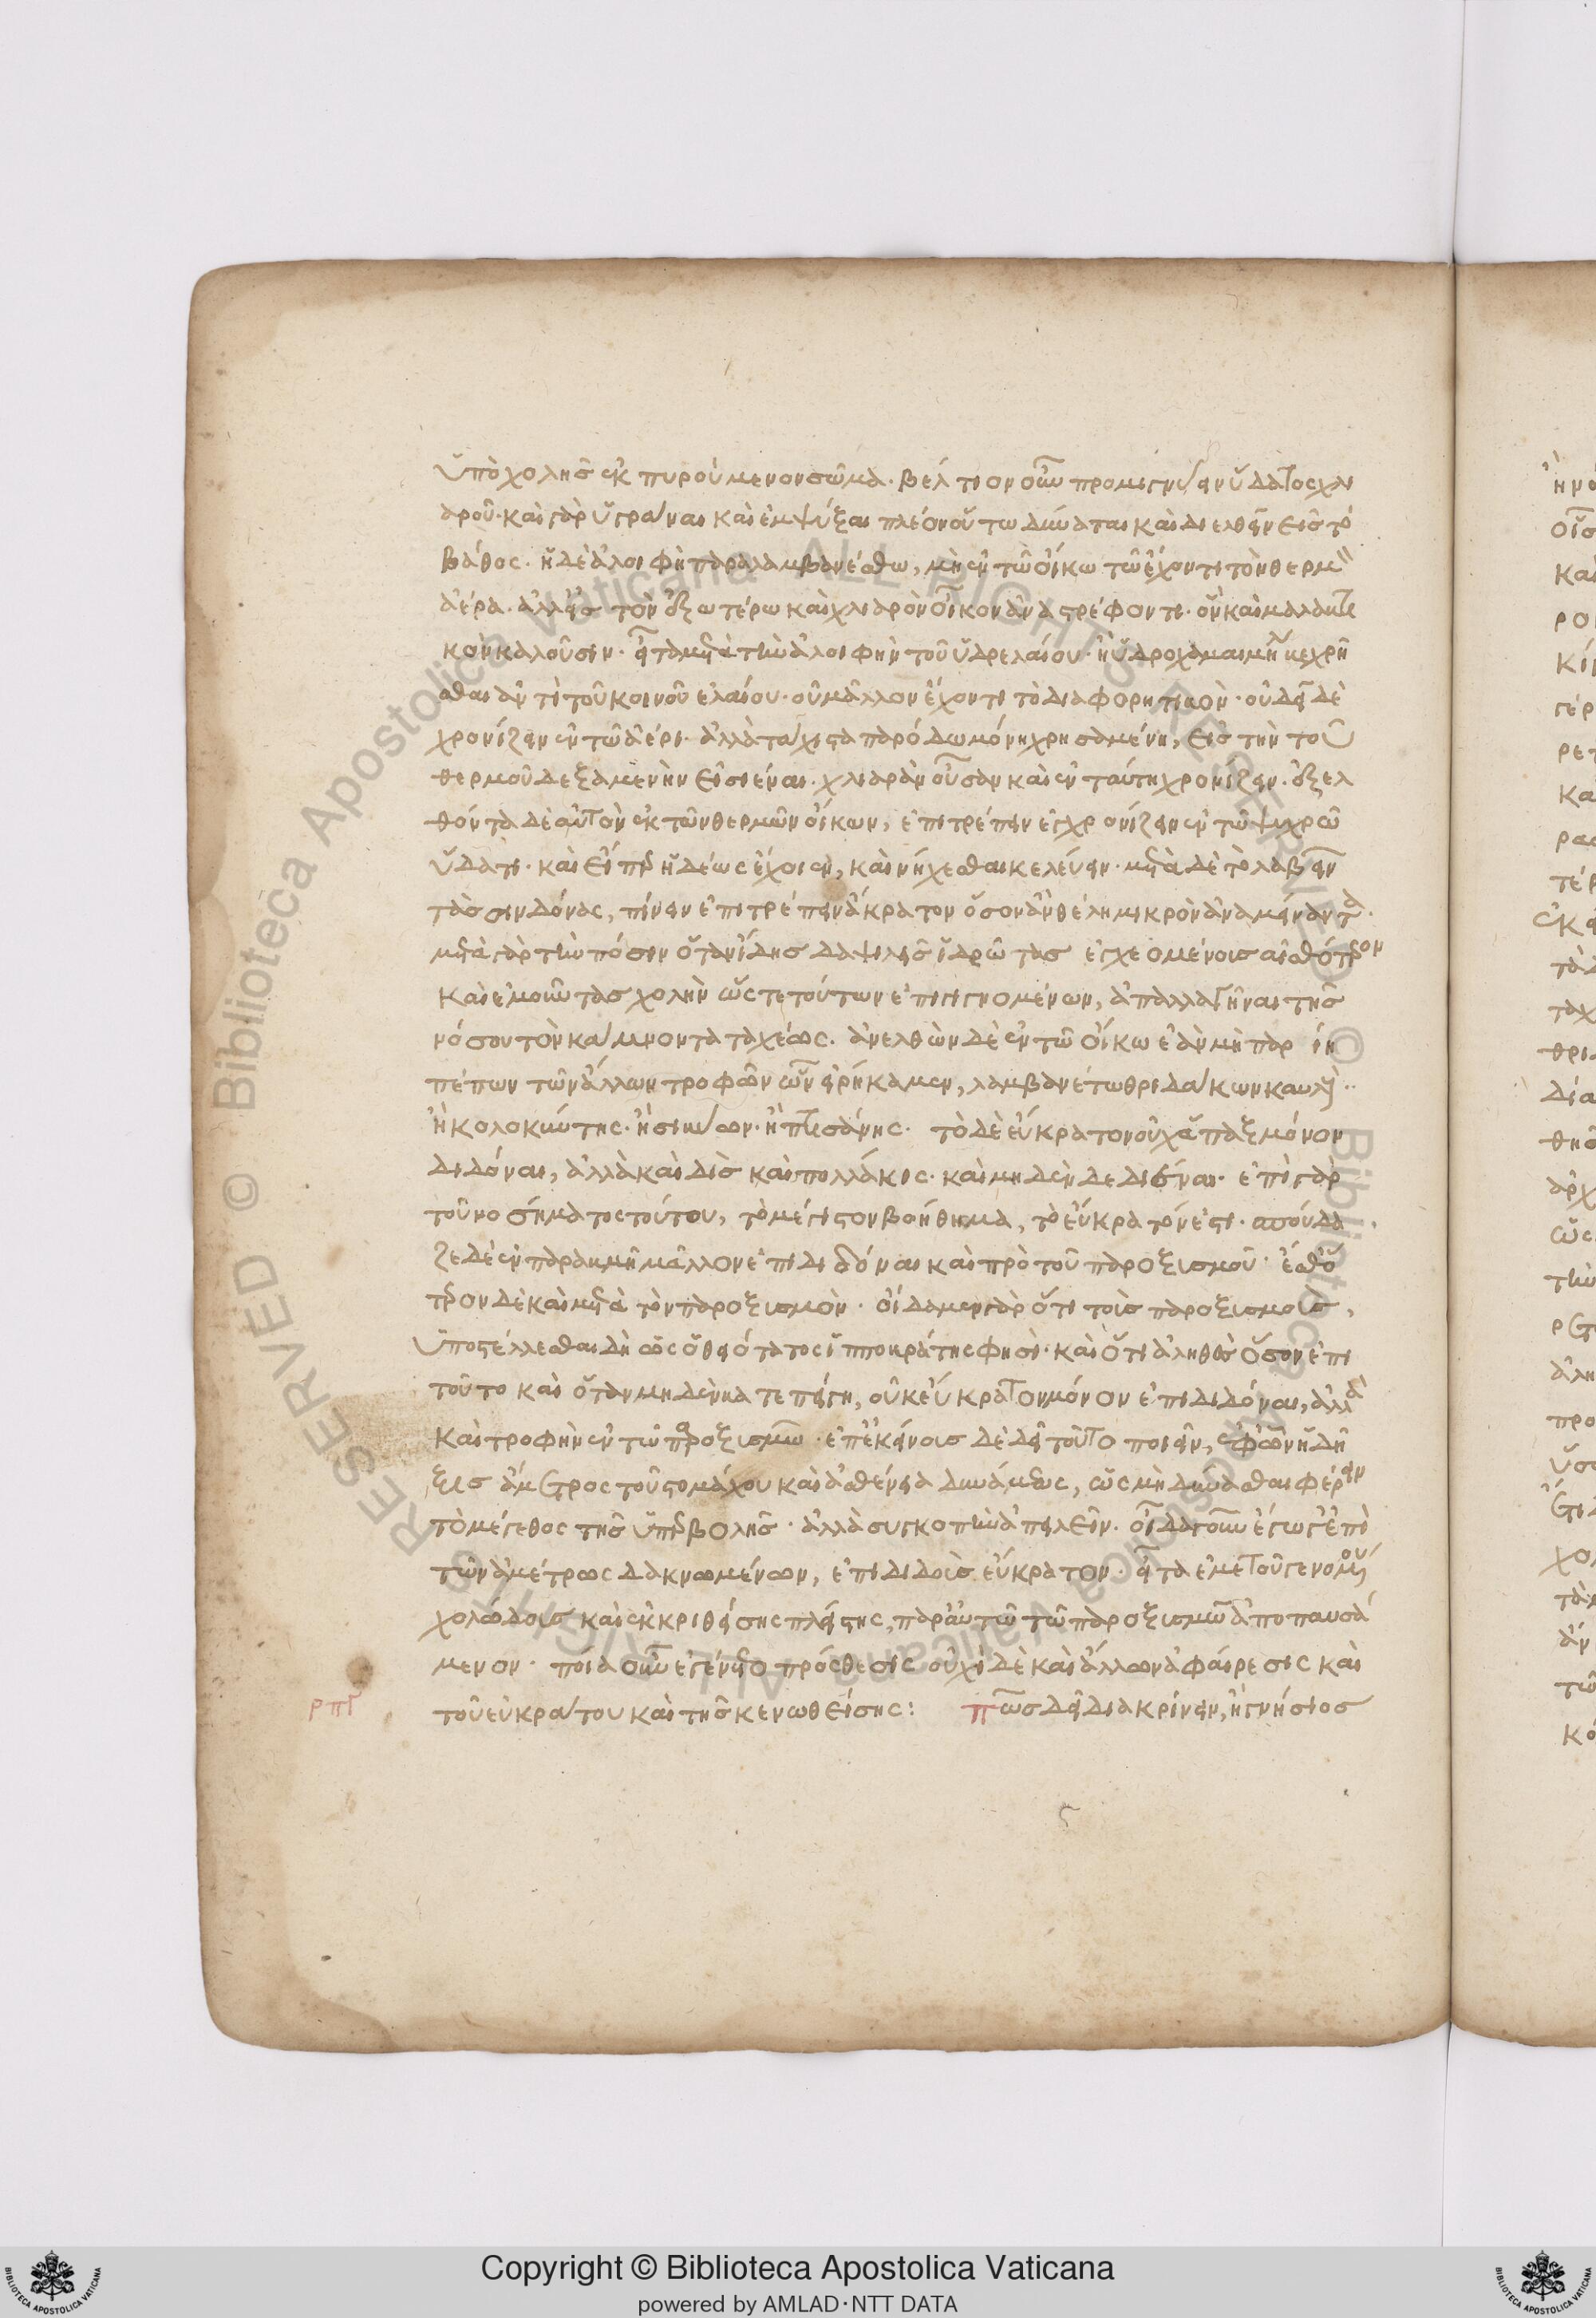 ὑπὸ χολῆς ἐκπυρούμενον σῶμα. βέλτιον οὖν προμιγνύειν ὕδατος χλι
αροῦ. καὶ γὰρ ὑγραίναι καὶ ἐμψύξαι πλέον οὕτω δύναται καὶ διελθεῖν εἰς τὸ
βάθος. ἡ δὲ ἀλοιφὴ παραλαμβανέσθω, μὴ ἐν τῶ οἴκω τῶ ἔχοντι τὸν θερμὸν
ἀέρα. ἀλλ' εἰς τὸν ἐξωτέρω καὶ χλιαρὸν οἶκον ἀναστρέφοντι. ὃν καὶ μαλακτι
κὸν καλοῦσιν. εἶτα μετὰ τὴν ἀλοιφὴν τοῦ ὑδρελαίου. ἢ ὑδροχαμαιμήλω κεχρῆ
σθαι ἀντὶ τοῦ κοινοῦ ἐλαίου. οὐ μᾶλλον ἔχοντι τὸ διαφορητικὸν. οὐ δεῖ δὲ
χρονίζειν ἐν τῶ ἀέρι. ἀλλὰ τάχιστα παρόδω μόνη χρησαμένη, εἰς τὴν τοῦ
θερμοῦ δεξαμενὴν εἰσιέναι. χλιαρὰν οὖσαν καὶ ἐν ταύτη χρονίζειν. ἐξελ
θόντα δὲ αὐτὸν ἐκ τῶν θερμῶν οἴκων, ἐπιτρέπειν ἐγχρονίζειν ἐν τῶ ψυχρῶ
ὕδατι. καὶ εἴπερ ἡδέως ἔχοιεν, καὶ νήχεσθαι κελεύειν. μετὰ δὲ τὸ λαβεῖν
τὰς σινδόνας, πίνειν ἐπιτρέπειν ἄκρατον ὅσον ἂν θέλη μικρὸν ἀναμείναντα.
μετὰ γὰρ τὴν πόσιν ὅταν ἴδης δαψιλεῖς ἱδρῶτας ἐγχεομένοις αἰσθότερον
καὶ ἐμοῦντας χολὴν ὥστε τούτων ἐπιγιγνομένων, ἀπαλλαγῆναι τῆς
νόσου τὸν κάμνοντα ταχέως. ἀνελθὼν δὲ ἐν τῶ οἴκω ἐὰν μὴ παρείη
πέπων τῶν ἄλλων τροφῶν ὧν εἰρήκαμεν, λαμβανέτω θριδάκων καυλὸν
ἢ κολοκύντης. ἢ σικύων. ἢ πτισάνης. τὸ δὲ εὔκρατον οὐχ ἅπαξ μόνον
διδόναι, ἀλλὰ καὶ δὶς καὶ πολλάκις. καὶ μηδὲν δεδιέναι. ἐπὶ γὰρ
τοῦ νοσήματος τούτου, τὸ μέγιστον βοήθημα, τὸ εὔκρατόν ἐστι. σπούδα
ζε δὲ ἐν παρακμῆ μᾶλλον ἐπιδιδόναι καὶ πρὸ τοῦ παροξισμοῦ. ἔσθό
τερον δὲ καὶ μετὰ τὸν παροξισμὸν. οἴδαμεν γὰρ ὅτι τοῖς παροξισμοῖς,
ὑποστέλλεσθαι δεῖ ὡς ὁ θειότατος ἱπποκράτης φησὶ. καὶ ὅτι ἀληθὲς ὅσον ἐπὶ
τοῦτο καὶ ὅταν μηδὲν κατεπείγη, οὐκ εὔκρατον μόνον ἐπιδιδόναι, ἀλλὰ
καὶ τροφὴν ἐν τῶ παροξισμῶ. ἐπ' ἐκείνοις δὲ δεῖ τοῦτο ποιεῖν, ἐφ' ὧν ἡ δῆ
ξις ἄμετρος τοῦ στομάχου καὶ ἀσθένεια δυνάμεως, ὡς μὴ δύνασθαι φέρειν
τὸ μέγεθος τῆς ὑπερβολῆς. ἀλλὰ συγκοπὴν ἀπειλεῖν. οἶδα γοῦν ἔγωγ' ἐπὶ
τῶν ἀμέτρως δακνωμένων, ἐπιδιδοὶς εὔκρατον. εἶτα ἐμετοῦ γενομένου
χολώδοις καὶ ἐκκριθείσης πλείστης, παρ' αὐτῶ τῶ παροξισμῶ ἀποπαυσά
μενον. ποία οὖν ἐγένετο πρόσθεσις οὐχὶ δὲ καὶ ἄλλων ἀφαίρεσις καὶ
ρπγ τοῦ εὐκράτου καὶ τῆς κενωθείσης: πῶς δεῖ διακρίνειν, ἢ γνήσιος
Copyright © Biblioteca Apostolica Vaticana
powered by AMLAD·NTT DATA